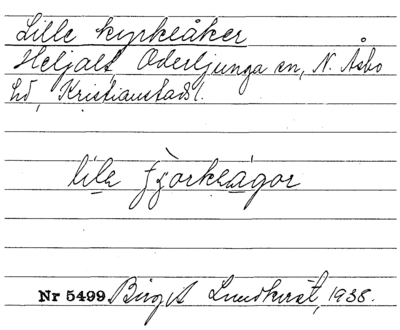 Lille kyrkeåker
Heljalt, Oderljunga sn, N. Åsbo
hd, Kristianstads l.
lila fjorkeågor
Nr 5499 Birgit Lundkvist, 1938.